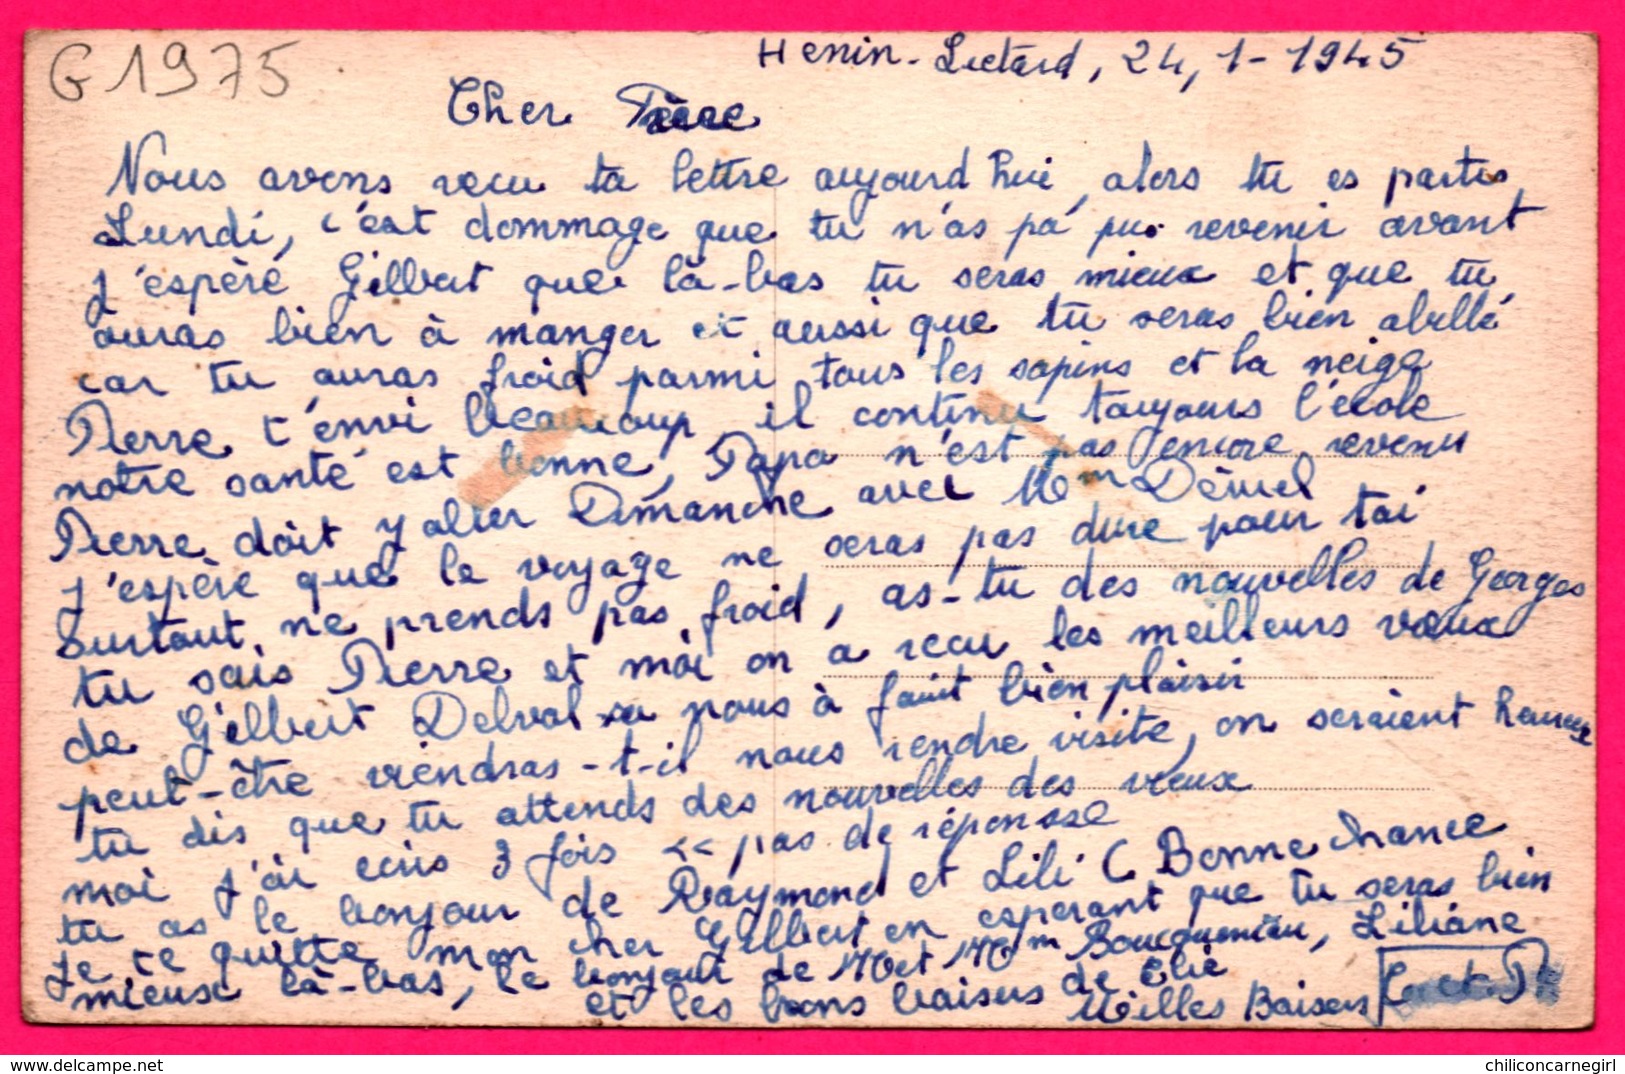 G1975
Henin-Lietard, 24,1-1945
Cher Frère
Nous avons recu ta lettre aujourd hui, alors tu es partis
Lundi, c'est dommage que tu n'as pa pu revenir avant
j'espère Gilbert que là-bas tu seras mieux et que tu
auras bien à manger et aussi que tu seras bien abillé
car tu auras froid parmi tous les sapins et la neige
Pierre t'envi beaucoup il continu toujours l'école
notre santé est bonne, Papa n'est pas encore revenu
Pierre doit y aller Dimanche avec Mm
j'espère que le voyage ne seras pas dure pour toi
surtout ne prends pas froid, as-tu des nouvelles de Georges
tu sais Pierre et moi on a recu les meilleurs vœux
de Gilbert Delval sa nous à fait bien plaisir
peut-être viendras-t-il nous rendre visite, on seraient heureux
tu dis que tu attends des nouvelles des vieux
moi j'ai écris 3 fois << pas de réponse
tu as le bonjour de Raymond et Lili Bonne chance
Je te quitte mon cher Gilbert en esperant que tu seras bien
mieux là-bas, le bonjour de M et Mm Liliane
et les bons baisers de Elie
Milles Baisers
chiliconcarnegirl
www.delcampe.net